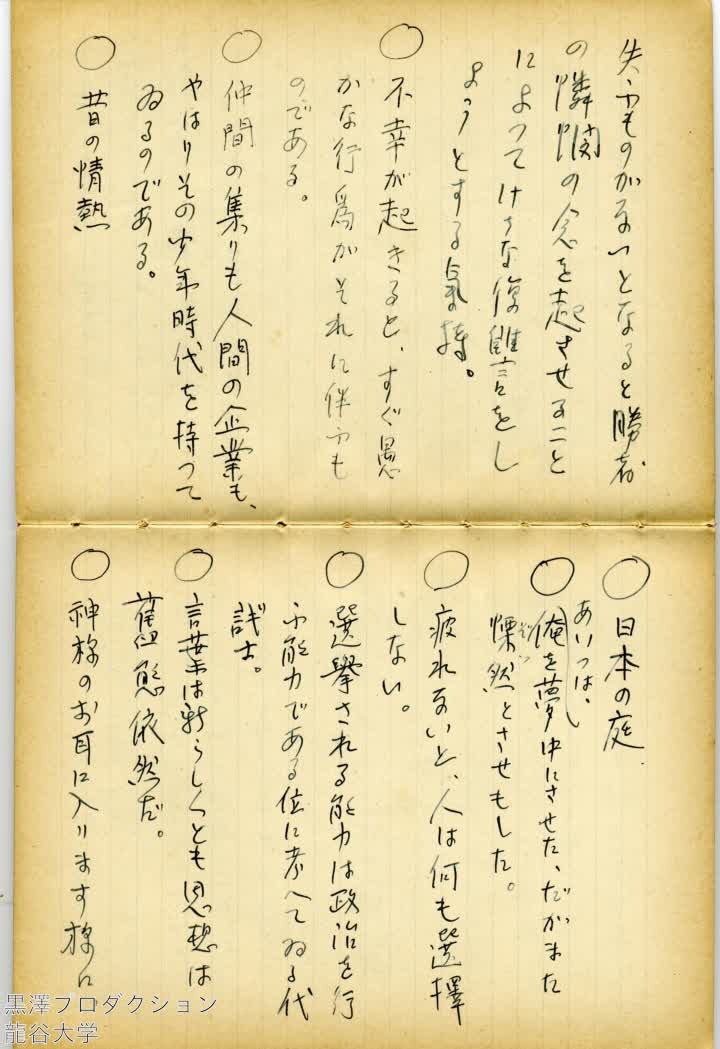 失ふものがないとなると勝者
の憐憫の念を起させること
によってけちな復讐をし
ようとする気持。
○不幸が起きると、すぐ愚
かな行為がそれに伴ふも
のである。
○仲間の集りも人間の企業も、
やはりその少年時代を持つて
ゐるのである。
○昔の情熱
○日本の庭
○あいつは、
俺を夢中にさせた、だがまた
慄然とさせもした。
○疲れないと、人は何も選擇
しない。
○選擧される能力は政治を行
ふ能力である位に考へてゐる代
議士。
○言葉は新らしくとも思想は
舊態依然だ。
○神様のお耳に入ります様に
黒澤プロダクション
龍谷大学